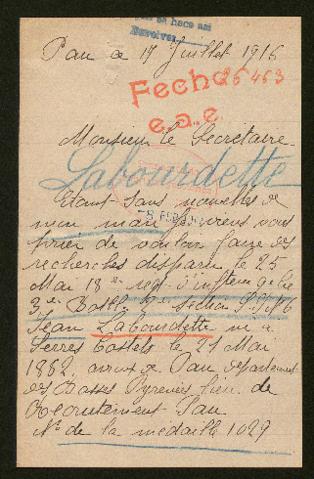 se hace asi
Devolver
Pau ce 17 Juillet 1916
Fecha 26453
e.a.e.
Monsieur le Secrétaire
Labourdette
Etant sans nouvelles de
mon mari je viens vous
prier de vouloir faire des
recherches disparu le 25
Mai 18e reg d'infterie
3e Batllon section
Jean Labourdette né a
Serres Castets le 21 Mai
1882 de Pau département
des Basses Pyrenées lieu de
Recrutement Pau
No de la medaille 1029